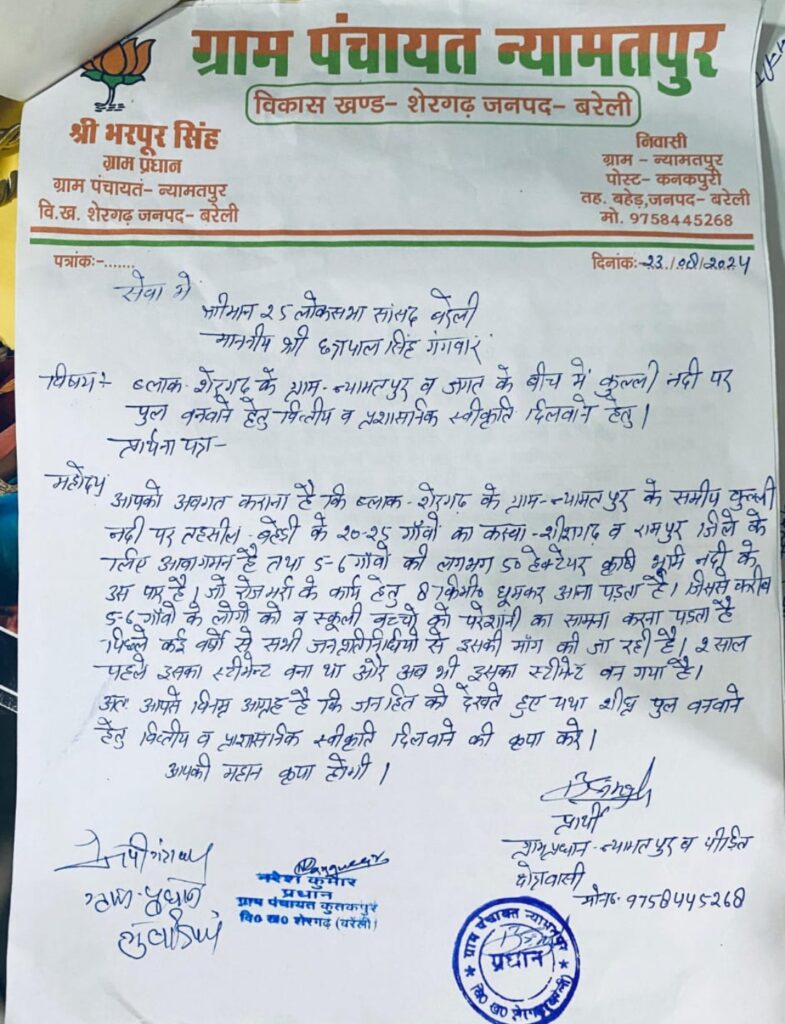 ग्राम पंचायत न्यामतपुर
विकास खण्ड- शेरगढ़ जनपद- बरेली
श्री भरपूर सिंह
ग्राम प्रधान
ग्राम पंचायत- न्यामतपुर
वि.ख. शेरगढ़ जनपद- बरेली
निवासी
ग्राम - न्यामतपुर
पोस्ट- कनकपुरी
तह. बहेड़,जनपद- बरेली
मो. 9758445268
पत्रांकः-.......
दिनांकः- 23/08/2024
सेवा मे
श्रीमान 25 लोकसभा सांसद बरेली
माननीय श्री छत्रपाल सिंह गंगवार
विषय:- ब्लाक-शेरगढ़ के ग्राम-न्यामतपुर व जगत के बीच में कुल्ली नदी पर
पुल बनवाने हेतु वित्तीय व प्रशासनिक स्वीकृति दिलवाने हेतु।
प्रार्थना पत्र-
महोदय
आपको अवगत कराना है कि ब्लाक-शेरगढ के ग्राम-न्यामतपुर के समीप कुल्ली
नदी पर तहसील-बहेडी के 20-25 गाँवो का कस्बा-शीशगढ़ व रामपुर जिले के
लिए आवागमन है तथा 5-6 गाँवो की लगभग 50 हेक्टेयर कृषि भूमि नदी के
उस पार है। जो रोजमर्रा के कार्य हेतु 8 किमी० घूमकर आना पड़ता है। जिससे करीब
5-6 गाँवो के लोगो को व स्कूली बच्चो को परेशानी का सामना करना पडता है
पिछले कई वर्षो से सभी जनप्रतिनिधियो से इसकी माँग की जा रही है। 2 साल
पहले इसका स्टीमेन्ट बना था और अब भी इसका स्टीमेंट बन गया है।
अतः आपसे विनम्र आग्रह है कि जनहित को देखते हुए यथा शीघ्र पुल बनवाने
हेतु वित्तीय व प्रशासनिक स्वीकृति दिलवाने की कृपा करे।
आपकी महान कृपा होगी।
BSingh
प्रार्थी
ग्रामप्रधान-न्यामतपुर व पीडित
क्षेत्रवासी
मो०न०-9758445268
ग्राम-प्रधान
नरेश कुमार
प्रधान
ग्राम पंचायत कुतकपुर
वि० ख० शेरगढ़ (बरेली)
ग्राम पंचायत न्यामतपुर
प्रधान
वि० ख० शेरगढ़ (बरेली)